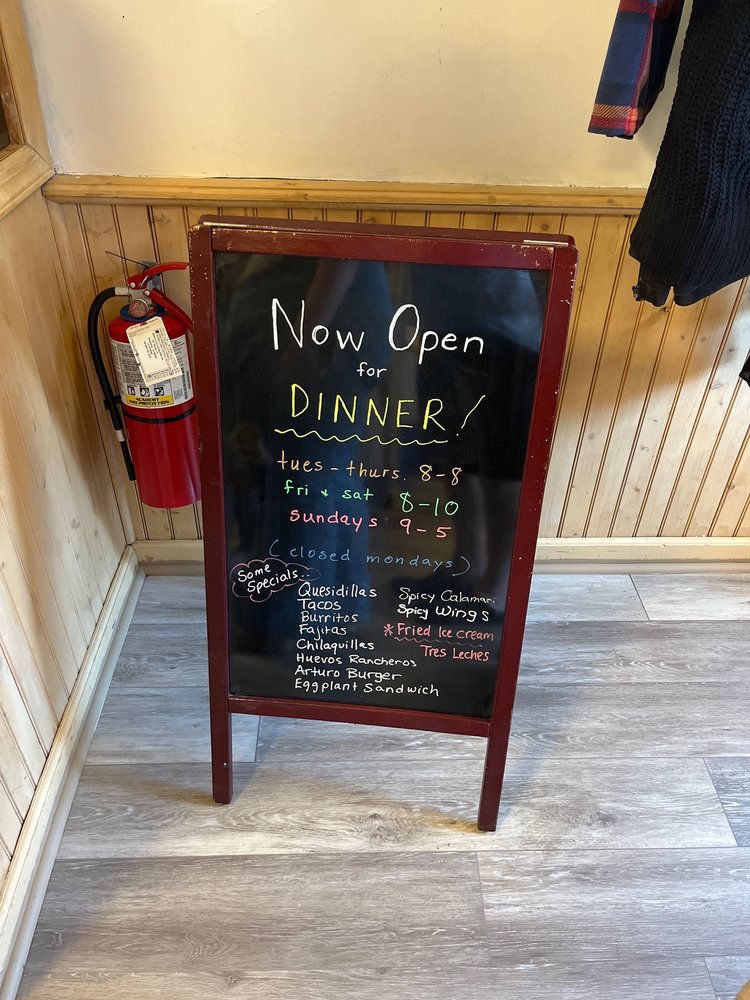 Now Open
for
DINNER!
tues - thurs. 8-8
fri & sat 8-10
sundays 9-5
(closed mondays)
Some
Specials...
Quesidillas
Tacos
Burritos
Fajitas
Chilaquilles
Huevos Rancheros
Arturo Burger
Eggplant Sandwich
Spicy Calamari
Spicy Wings
*Fried Ice cream
Tres Leches
ACADEMY
FIRE PROTECTION